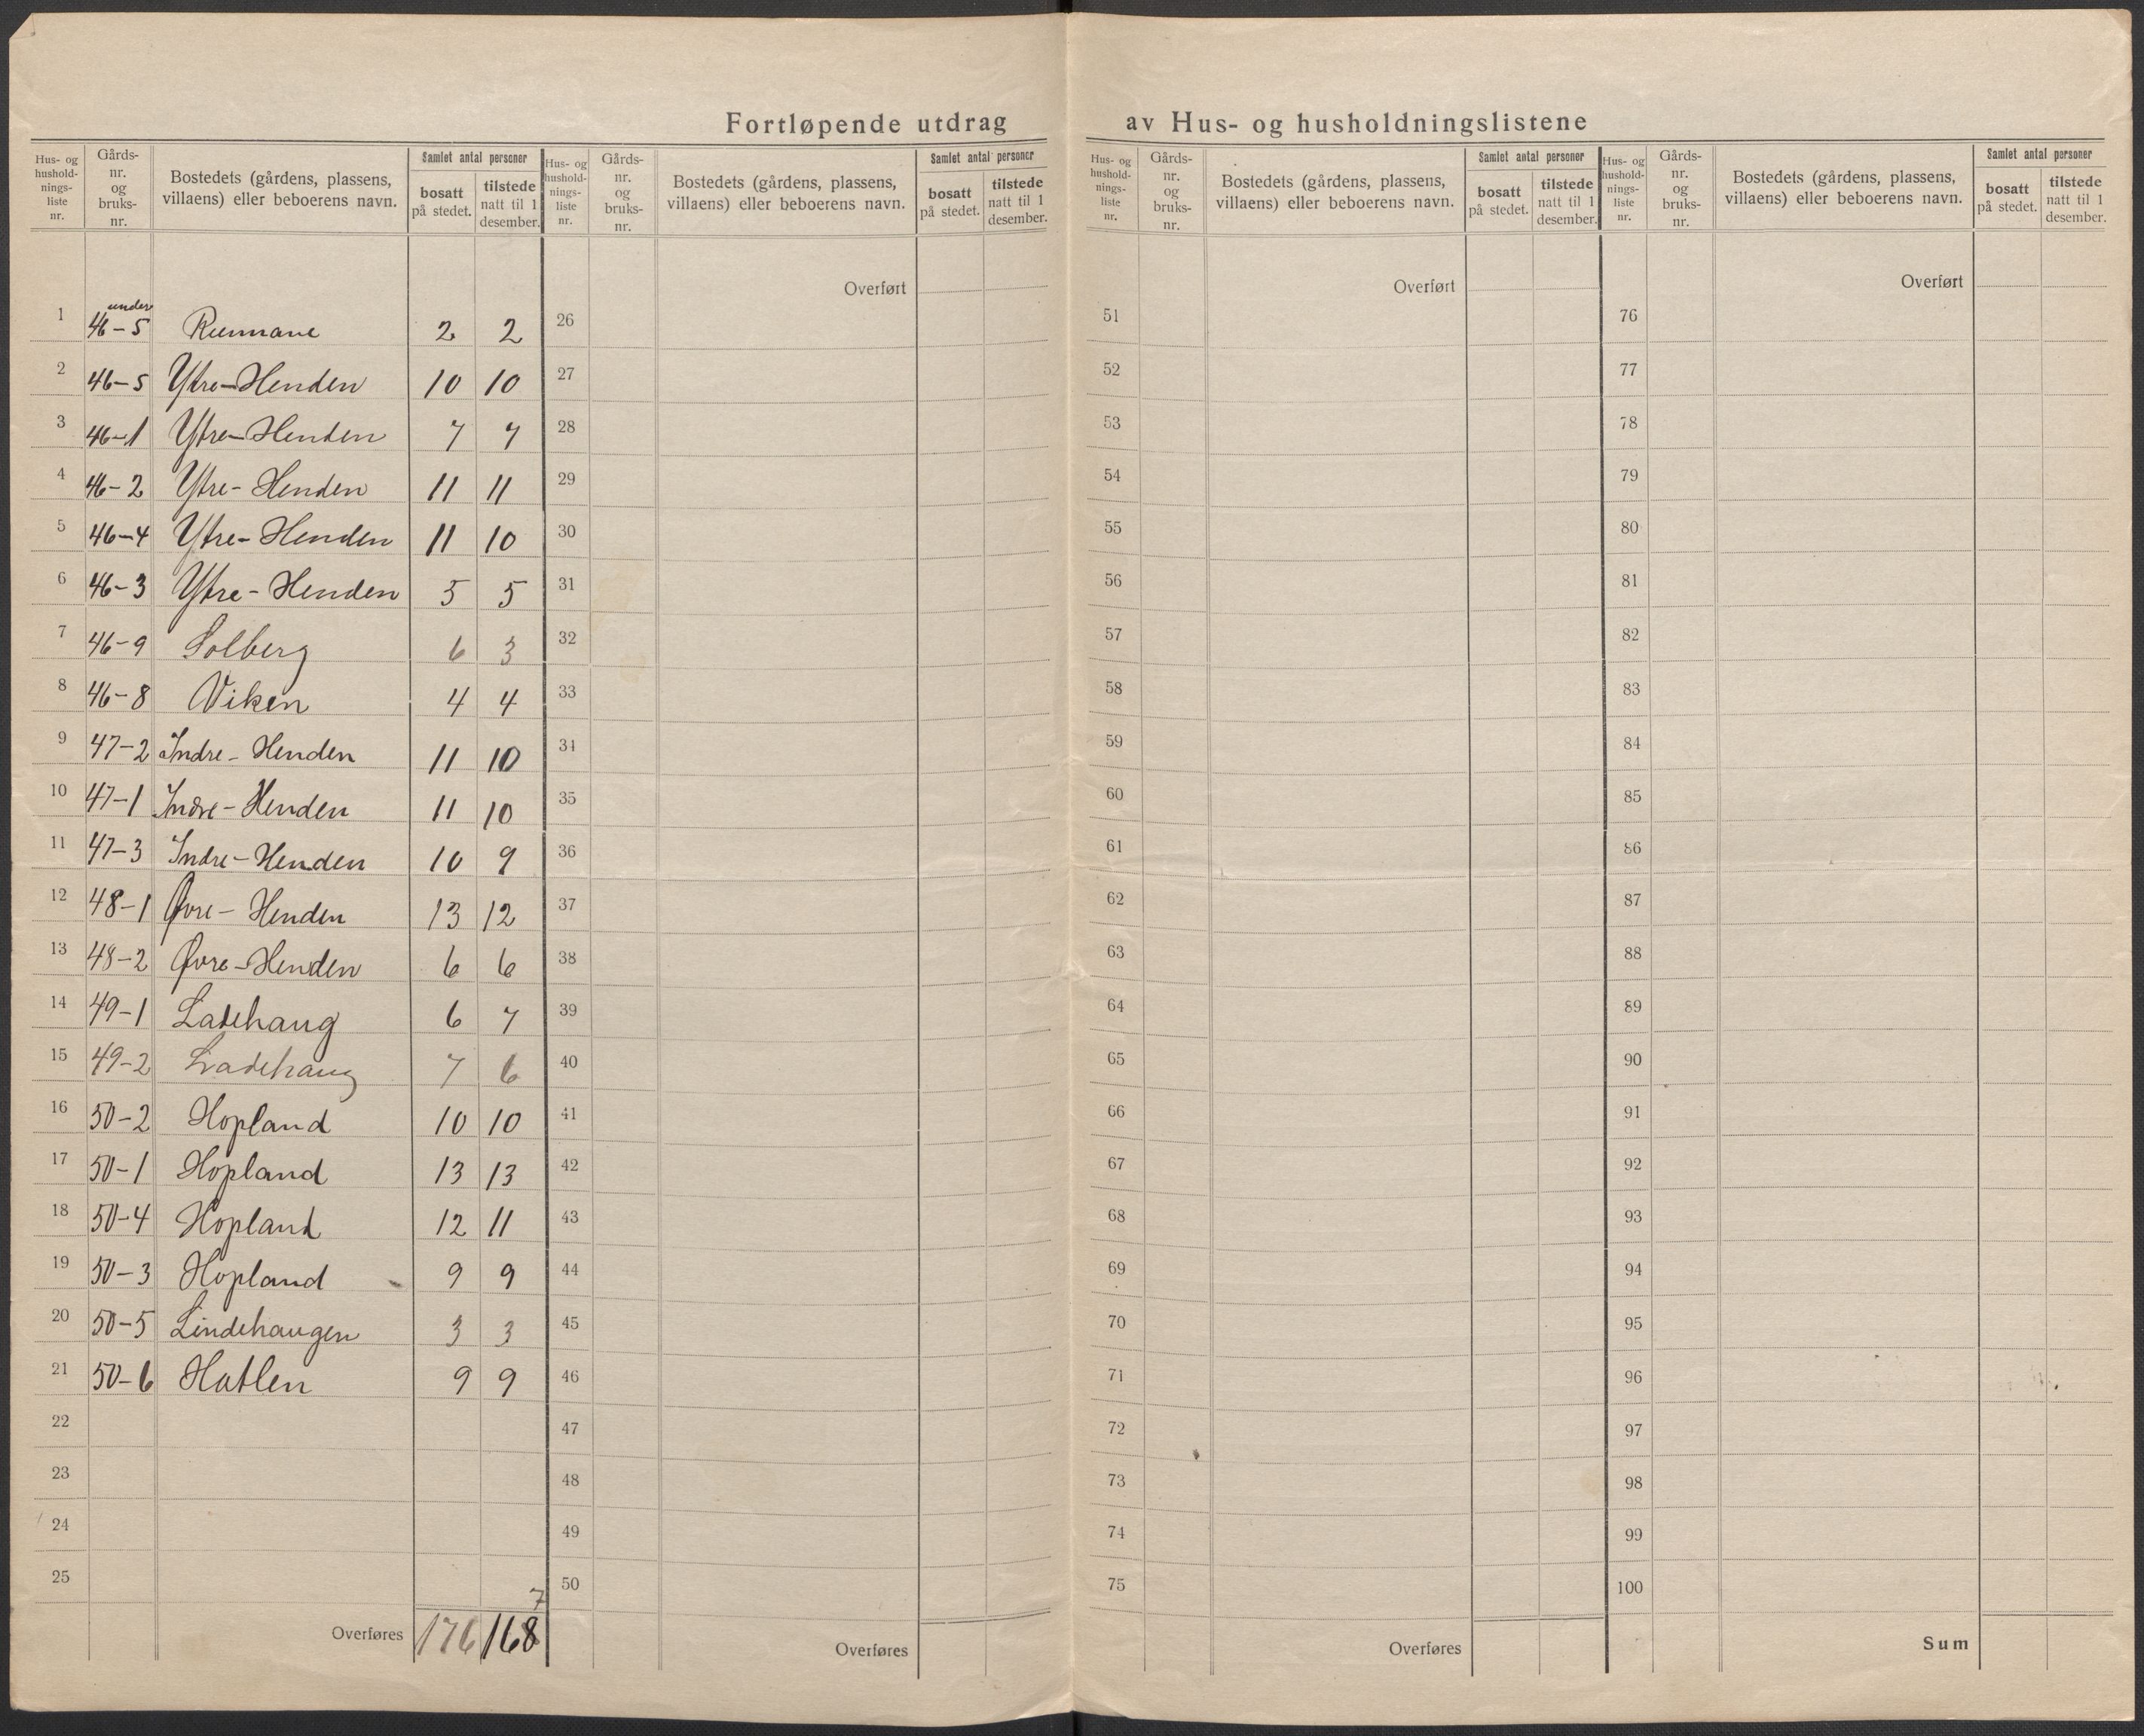 Fortløpende utdrag av Hus- og husholdningslistene
Hus- og hushold-nings-liste nr. Gårds-nr. og bruks-nr. Bostedets (gårdens, plassens, villaens) eller beboerens navn. Samlet antal personer bosatt på stedet. tilstede natt til 1 desember.
Hus- og hushold-nings-liste nr. Gårds-nr. og bruks-nr. Bostedets (gårdens, plassens, villaens) eller beboerens navn. Samlet antal personer bosatt på stedet. tilstede natt til 1 desember.
Hus- og hushold-nings-liste nr. Gårds-nr. og bruks-nr. Bostedets (gårdens, plassens, villaens) eller beboerens navn. Samlet antal personer bosatt på stedet. tilstede natt til 1 desember.
Hus- og hushold-nings-liste nr. Gårds-nr. og bruks-nr. Bostedets (gårdens, plassens, villaens) eller beboerens navn. Samlet antal personer bosatt på stedet. tilstede natt til 1 desember.
Overført Overført Overført
under
1 46-5 2 2 26 51 76
2 46-5 Ytre-Henden 10 10 27 52 77
3 46-1 Ytre-Henden 7 7 28 53 78
4 46-2 Ytre-Henden 11 11 29 54 79
5 46-4 Ytre-Henden 11 10 30 55 80
6 46-3 Ytre-Henden 5 5 31 56 81
7 46-9 Solberg 6 3 32 57 82
8 46-8 Viken 4 4 33 58 83
9 47-2 Indre-Henden 11 10 34 59 84
10 47-1 Indre-Henden 11 10 35 60 85
11 47-3 Indre-Henden 10 9 36 61 86
12 48-1 Øvre-Henden 13 12 37 62 87
13 48-2 Øvre-Henden 6 6 38 63 88
14 49-1 Ladehaug 6 7 39 64 89
15 49-2 Ladehaug 7 6 40 65 90
16 50-2 Hopland 10 10 41 66 91
17 50-1 Hopland 13 13 42 67 92
18 50-4 Hopland 12 11 43 68 93
19 50-3 Hopland 9 9 44 69 94
20 50-5 Lindehaugen 3 3 45 70 95
21 50-6 Hatlen 9 9 46 71 96
22 47 72 97
23 48 73 98
24 49 74 99
25 50 75 100
7
Overføres 176 168 Overføres Overføres Sum